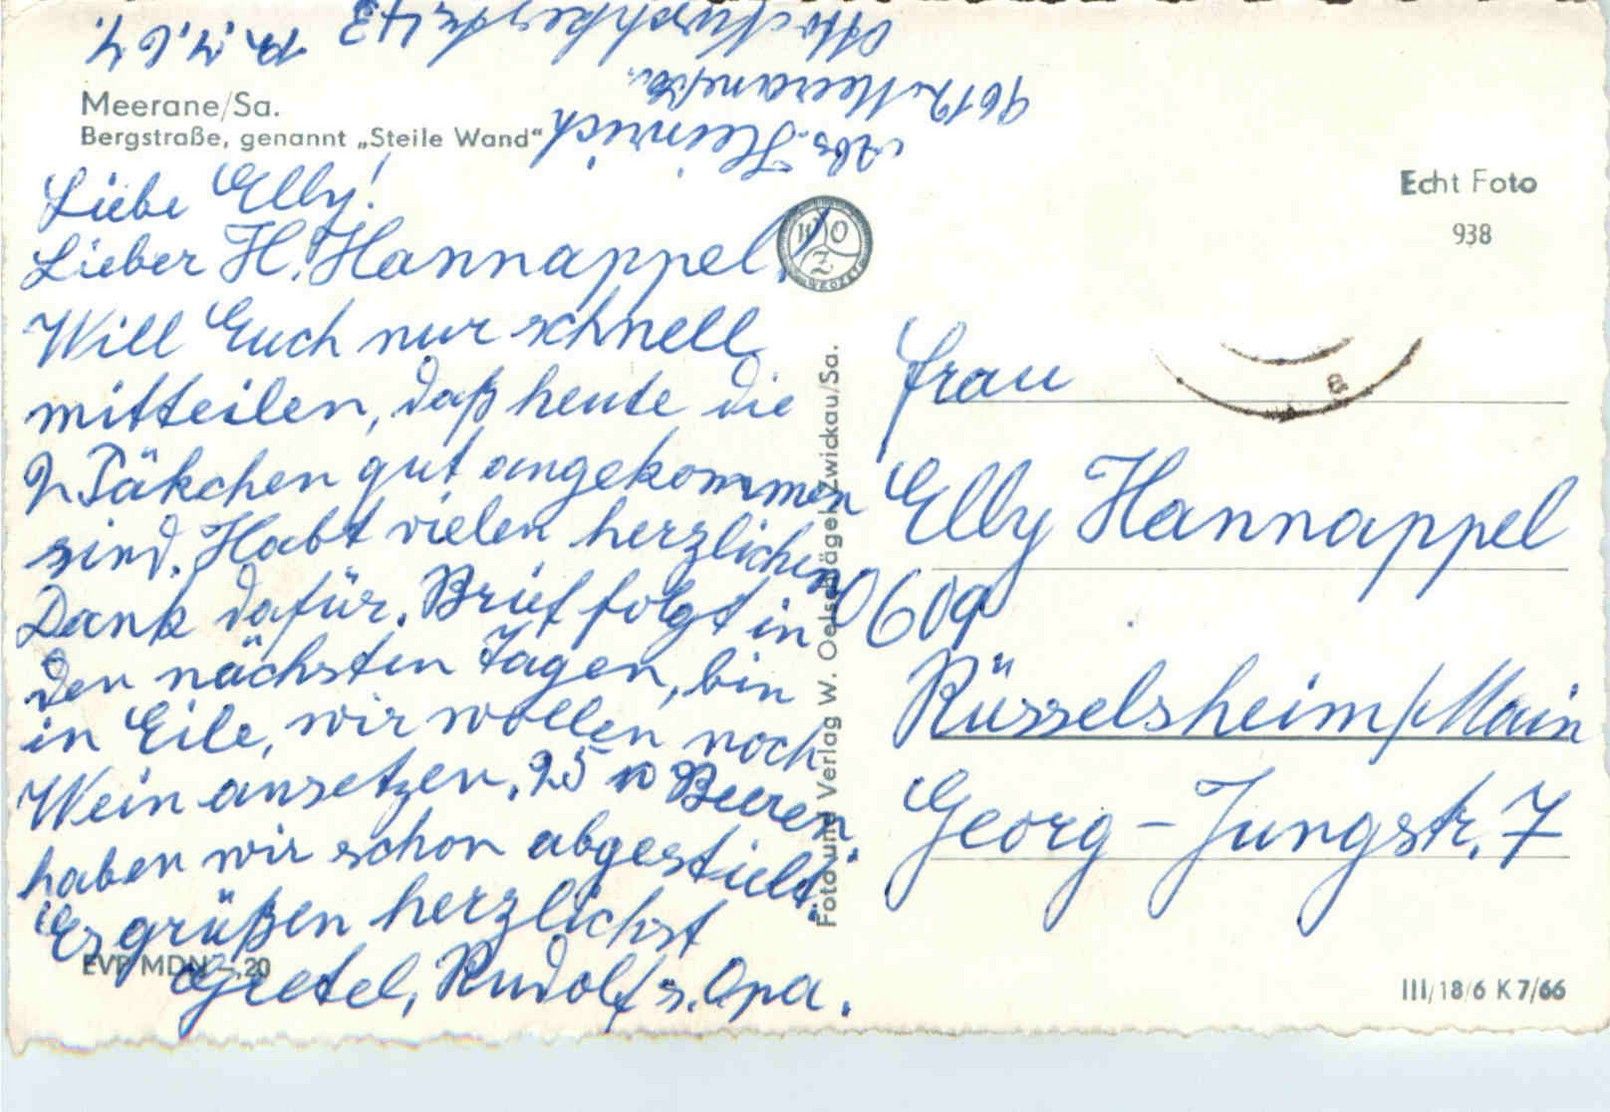 Abs. Heinrich
9612 Meerane/Sa.
Otto
43
12.7.67.
Meerane/Sa.
Bergstraße, genannt „Steile Wand"
Liebe Elly!
Lieber H. Hannappel!
Will Euch nur schnell
mitteilen, daß heute die
2 Päkchen gut angekommen
sind. Habt vielen herzlichen
Dank dafür. Brief folgt in
den nächsten Tagen, bin
in Eile, wir wollen noch
Wein ansetzen. 25 Beeren
haben wir schon abgestielt.
Es grüßen herzlichst
Gretel, Rudolf u. Opa.
EVP MDN -,20
W O Z
WEOZET
Foto und Verlag W. Oelschlägel, Zwickau/Sa.
Echt Foto
938
a
Frau
Elly Hannappel
609
Rüsselsheim/Main
Georg-Jungstr. 7
III/18/6 K 7/66